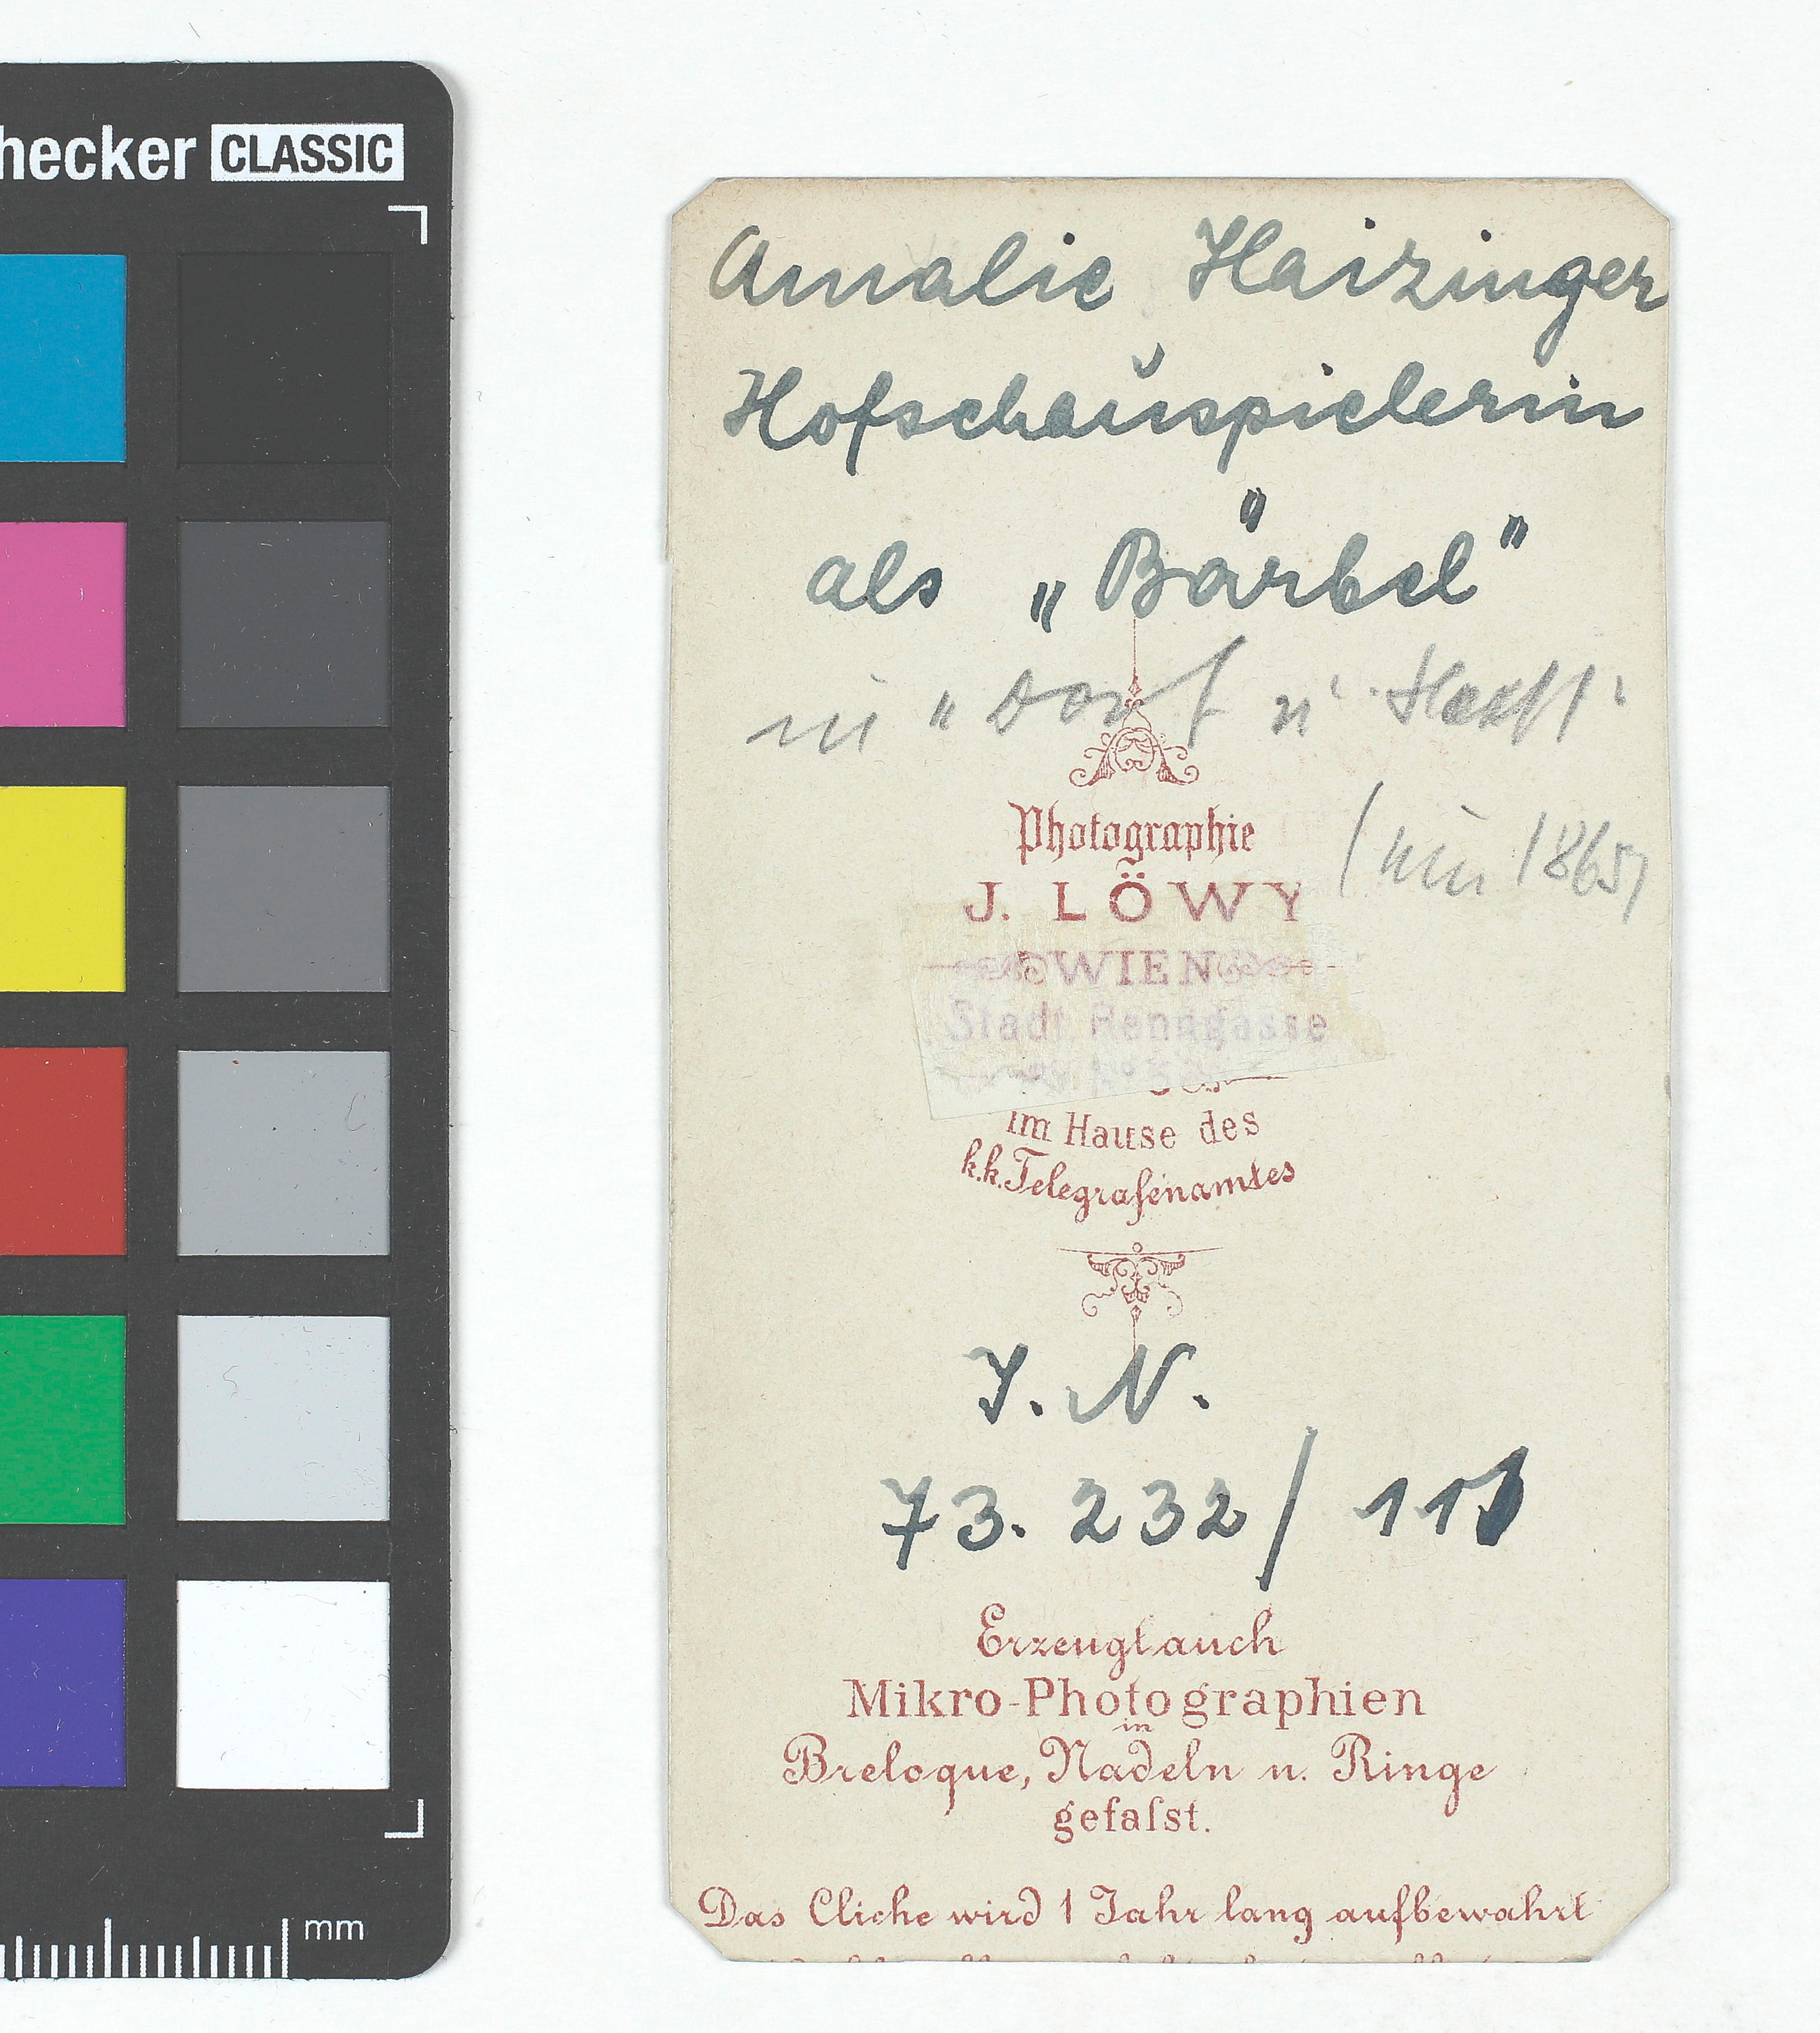 hecker CLASSIC
Amalie Haizinger
Hofschauspielerin
als „Bärbel"
in "Dorf u
Photographie
(um 1865)
J. LÖWY
WIEN
Stadt Renngasse
im Hause des
k.k. Telegrafenamtes
J. N.
73.232/ 111
Erzeugt auch
Mikro-Photographien
in
Breloque, Nadeln u. Ringe
gefaſst.
Das Cliche wird 1 Jahr lang aufbewahrt
mm